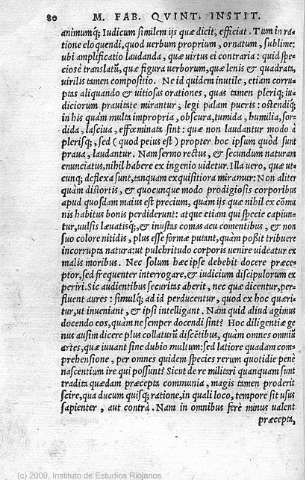 80 M. FAB. QVINT. INSTIT.
animumq; Iudicum similem ijs quæ dicit, efficiat. Tum in ra
tione eloquendi, quod uerbum proprium, ornatum, sublime:
ubi amplificatio laudanda, quæ uirtus ei contraria: quid spe
ciose translatũ, quæ figura uerborum, quæ lenis & quadrata,
uirilis tamen compositio. Ne id quidem inutile, etiam corru
ptas aliquando & uitiosas orationes, quas tamen pleriq; iu
diciorum prauitate mirantur, legi palam pueris: ostendiq;
in his quàm multa impropria, obscura, tumida, humilia, sor
dida, lasciua, effœminata sint: quæ non laudantur modo à
plerisq;, sed (quod peius est) propter hoc ipsum quòd sunt
praua, laudantur. Nam sermo rectus, & secundum naturam
enunciatus, nihil habere ex ingenio uidetur. Illa uero, quæ ut-
cunq; deflexa sunt, tanquam exquisitiora miramur: Non aliter
quàm distortis, & quocunque modo prodigiosis corporibus
apud quosdam maius est precium, quàm ijs quæ nihil ex cõmu
nis habitus bonis perdiderunt: atque etiam qui specie capiun-
tur, uulsis leuatisq;, & inustas comas acu comentibus, & non
suo colore nitidis, plus esse formæ putant, quàm possit tribuere
incorrupta natura: ut pulchritudo corporis uenire uideatur ex
malis moribus. Nec solum hæc ipse debebit docere præce
ptor, sed frequenter interrogare, & iudicium discipulorum ex
periri. Sic audientibus securitas aberit, nec quæ dicentur, per-
fluent aures: simulq; ad id perducentur, quod ex hoc quæri-
tur, ut inueniant, & ipsi intelligant. Nam quid aliud agimus
docendo eos, quàm ne semper docendi sint? Hoc diligentiæ ge
nus ausim dicere plus collaturũ discẽtibus, quàm omnes omniũ
artes, quæ iuuant sine dubio multum: sed latiore quadam com-
prehensione, per omnes quidem species rerum quotidie penè
nascentium ire qui possunt? Sicut de re militari quanquam sunt
tradita quædam præcepta communia, magis tamen proderit
scire, qua ducum quisq; ratione, in quali loco, tempore sit usus
sapienter, aut contrà. Nam in omnibus ferè minus ualent
præcepta,
(c) 2009, Instituto de Estudios Riojanos